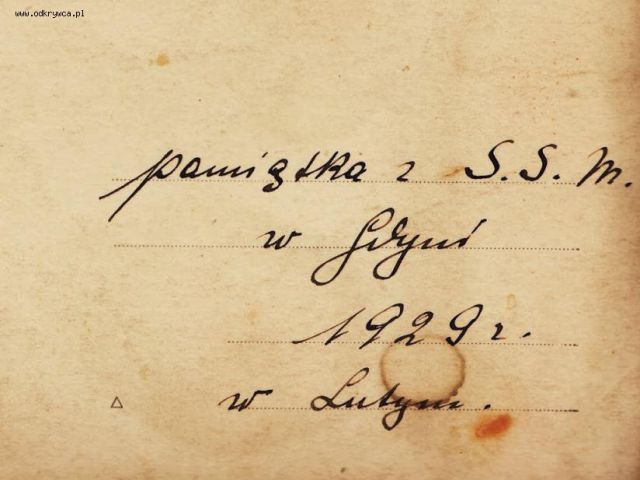 www.odkrywca.pl
pamiątka z S.S.M.
w Gdyni
1929 r.
w Lutym.